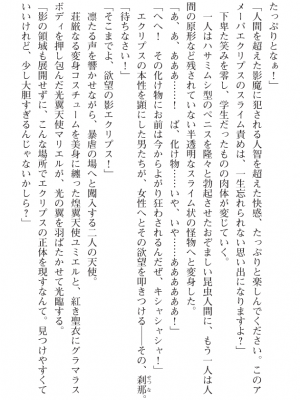 たっぷりとなぁ」
「人間を超えた影魔に犯される人智を超えた快感、たっぷりと楽しんでください。このア
メーバエクリプスのスライム責めは、一生忘れられない思い出になりますよ？」
　下卑た笑みを零し、学生だったものの肉体が変じていく。
　一人はハサミムシ型のペニスを隆々と勃起させたおぞましい昆虫人間に、もう一人は人
間の原形など残されていない半透明なスライム状の怪物へと変身した。
「あ、あ、あああ……！　ば、化け物……いや……あああああ！」
「へへ！　その化け物にお前は今からよがり狂わされるんだぜ、キシャシャシャ！」
　エクリプスの本性を顕にした男たちが、女性へとその欲望を叩きつける――その、刹那。
「待ちなさい！」
「そこまでよ、欲望の影エクリプス！」
　凛たる声を響かせながら、暴虐の場へと闖入する二人の天使。
　荘厳なる変身コスチュームを美身に纏った煌翼天使ユミエルと、紅き聖衣にグラマラス
ボディを押し包んだ光翼天使マリエルが、光の翼を羽ばたかせて光臨する。
「影の領域も展開せずに、こんな場所でエクリプスの正体を現すなんて。見つけやすくて
いいけれど、少し大胆すぎるんじゃないかしら？」